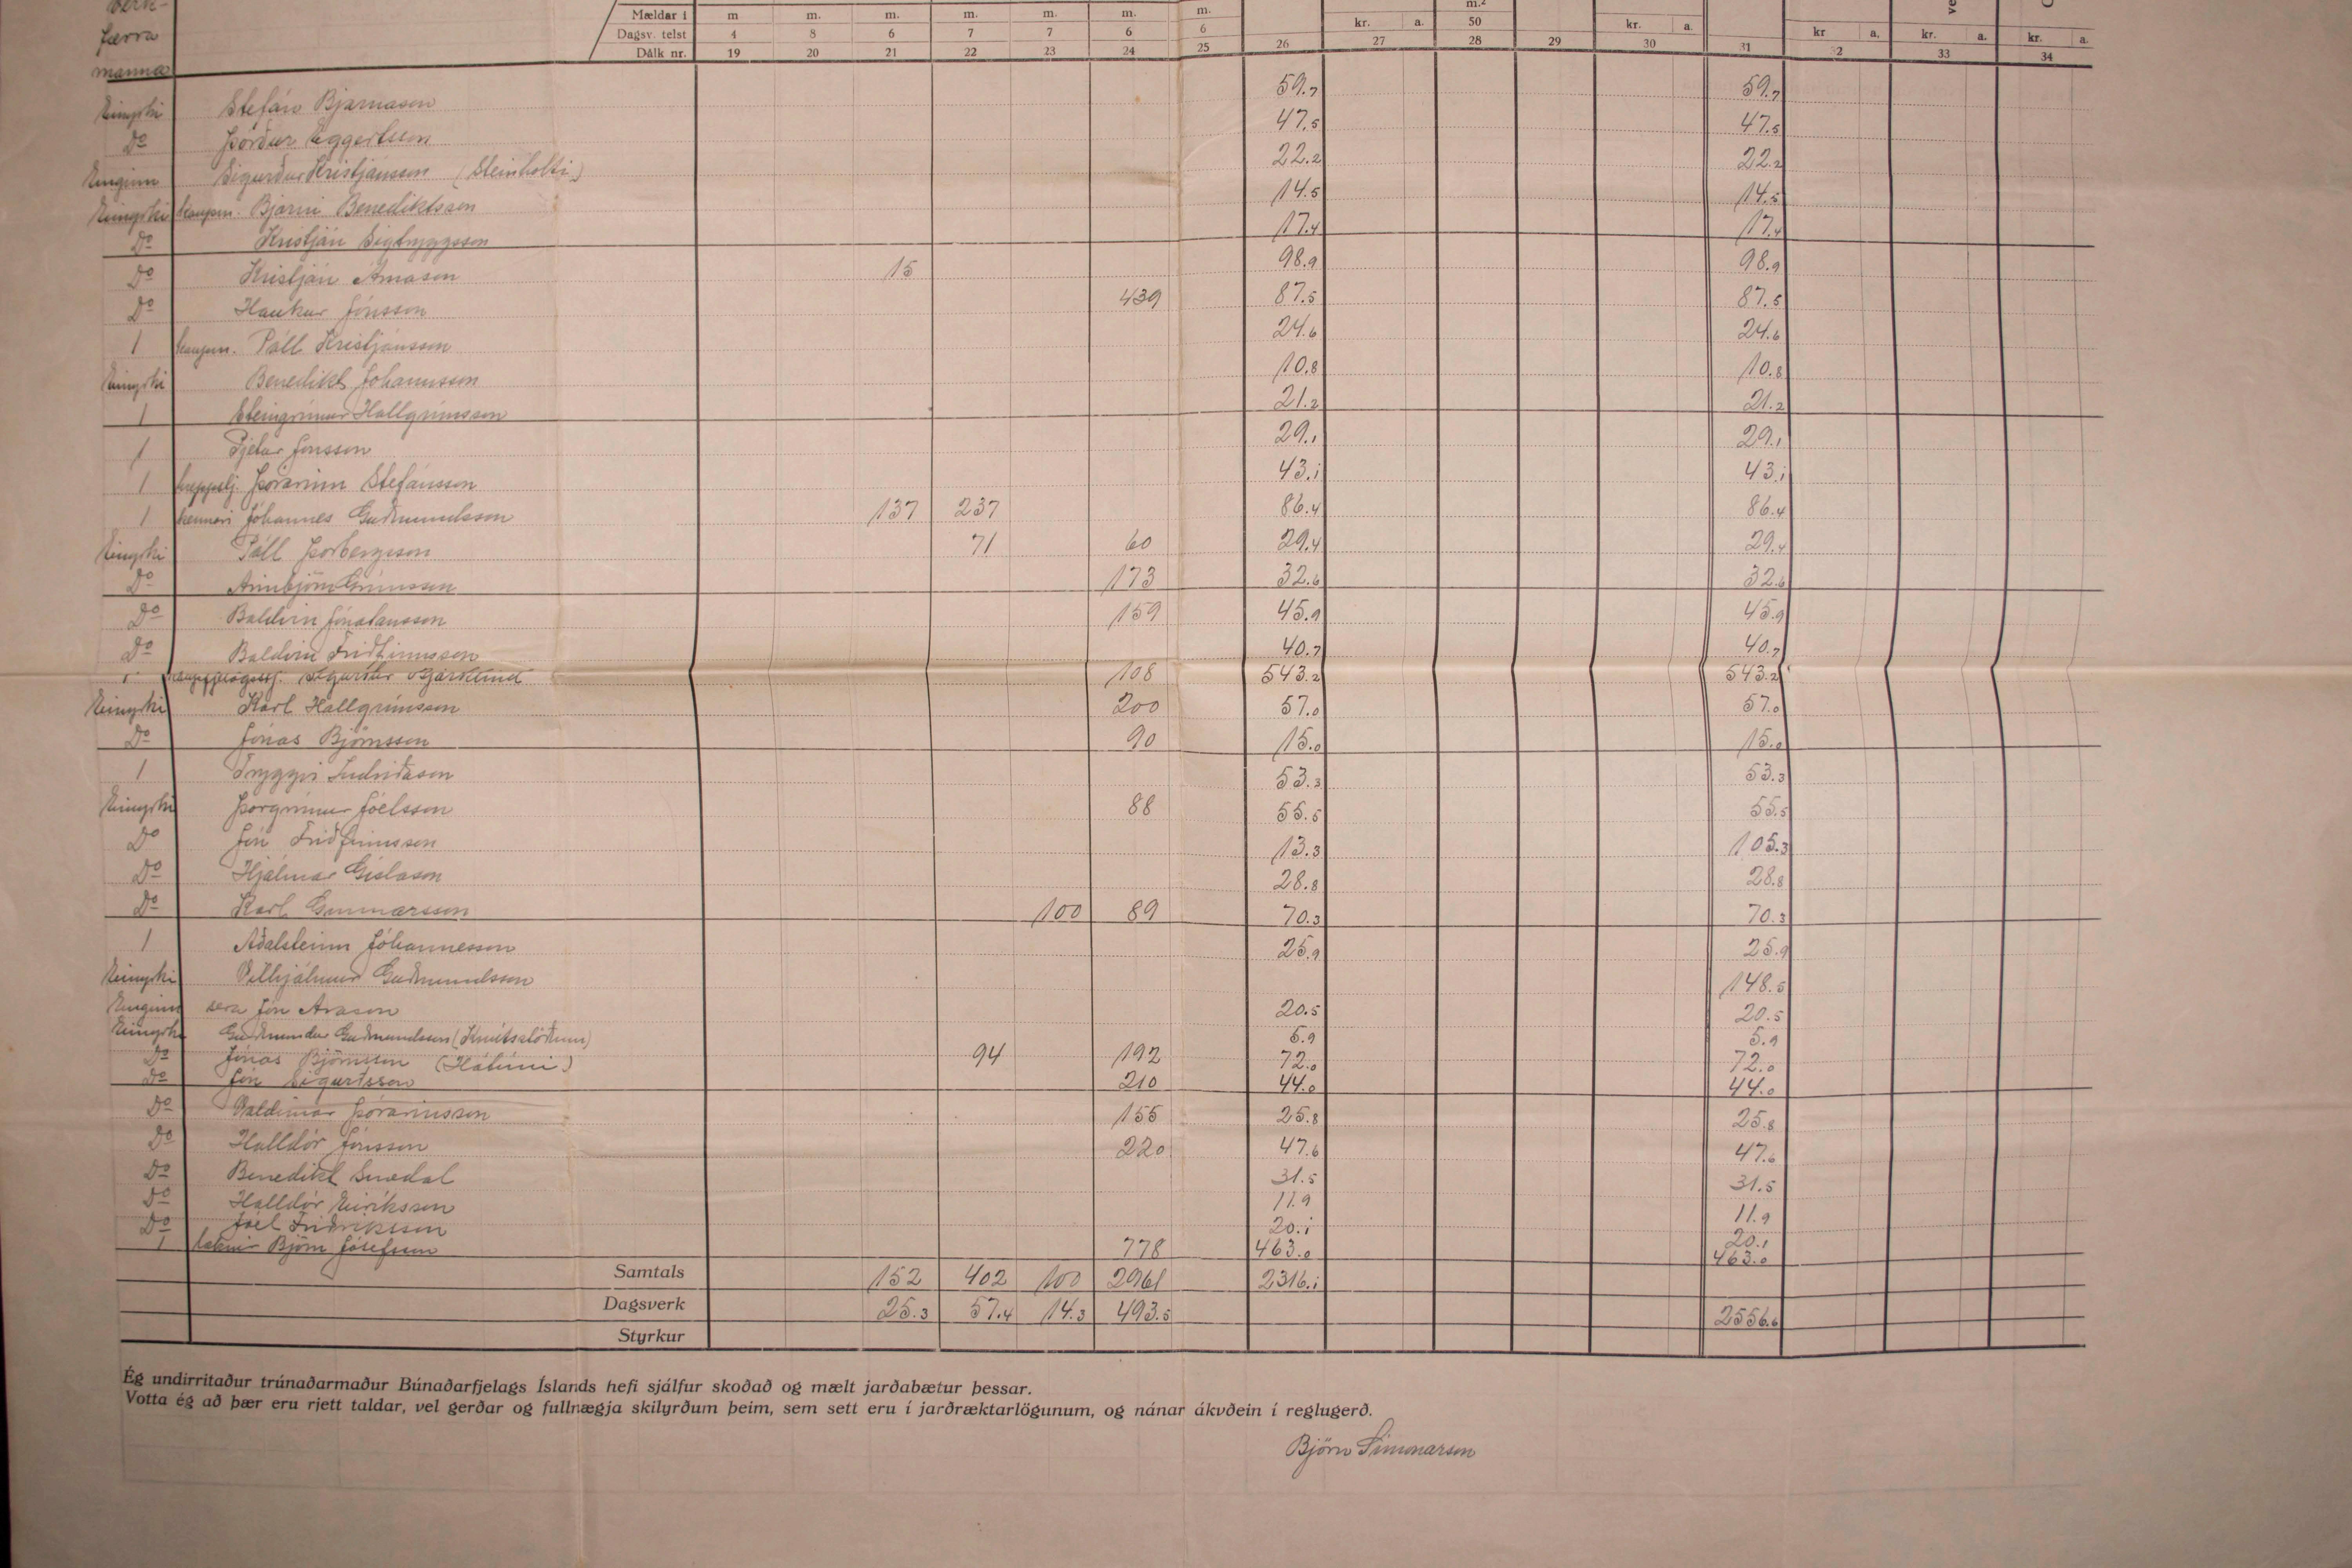 færra
manna
Mældar í m m. m. m. m. m. m. m.² 
Dagsv. telst 4 8 6 7 7 6 6 kr. a. 50 kr. a. kr a. kr. a. kr. a.
Dálk nr. 19 20 21 22 23 24 25 26 27 28 29 30 31 32 33 34
Einyrki Stefán Bjarnason 59.7 59.7
Do Þórður Eggertsson 47.5 47.5
Enginn Sigurður Kristjánsson (Steinholti) 22.2 22.2
Einyrki kaupm. Bjarni Benediktsson 14.5 14.5
Do Kristján Sigtryggsson 17.4 17.4
Do Kristján Árnason 15 98.9 98.9
Do Haukur Jónsson 439 87.5 87.5
1 kaupm. Páll Kristjánsson 24.6 24.6
Einyrki Benedikt Jóhannsson 10.8 10.8
1 Steingrímur Hallgrímsson 21.2 21.2
1 Pjetur Jónsson 29.1 29.1
1 hreppstj. Þórarinn Stefánsson 43.1 43.1
1 kennari Jóhannes Guðmundsson 137 237 86.4 86.4
Einyrki Páll Þorbergsson 71 60 29.4 29.4
Do Arinbjörn Grímsson 173 32.6 32.6
Do Baldvin Jónatansson 159 45.9 45.9
Do Baldvin Friðfinnsson 40.7 40.7
1 kaupfjelagsstj. Sigurður Bjarklind 108 543.2 543.2
Einyrki Karl Hallgrímsson 200 57.0 57.0
Do Jónas Björnsson 90 15.0 15.0
1 Tryggvi Indriðason 53.3 53.3
Einyrki Þorgrímur Jóelsson 88 55.5 55.5
Do Jón Friðfinnsson 13.3 105.3
Do Hjálmar Gíslason 28.8 28.8
Do Karl Gunnarsson 100 89 70.3 70.3
1 Aðalsteinn Jóhannesson 25.9 25.9
Einyrki Vilhjálmur Guðmundsson 148.5
Enginn sera Jón Arason 20.5 20.5
Einyrki Guðmundur Guðmundsson (Knútsstöðum) 5.9 5.9
Do Jónas Björnsson (Hátúni) 94 192 72.0 72.0
Do Jón Sigurðsson 210 44.0 44.0
Do Valdimar Þórarinsson 155 25.8 25.8
Do Halldór Jónsson 220 47.6 47.6
Do Benedikt Snædal 31.5 31.5
Do Halldór Eiríksson 11.9 11.9
Do Jóel Friðriksson 20.1 20.1
1 læknir Björn Jósefsson 778 463.0 463.0
Samtals 152 402 100 2961 2316.1
Dagsverk 25.3 57.4 14.3 493.5 2556.6
Styrkur
Ég undirritaður trúnaðarmaður Búnaðarfjelags Íslands hefi sjálfur skoðað og mælt jarðabætur þessar.
Votta ég að þær eru rjett taldar, vel gerðar og fullnægja skilyrðum þeim, sem sett eru í jarðræktarlögunum, og nánar ákvðein í reglugerð.
Björn Símonarson